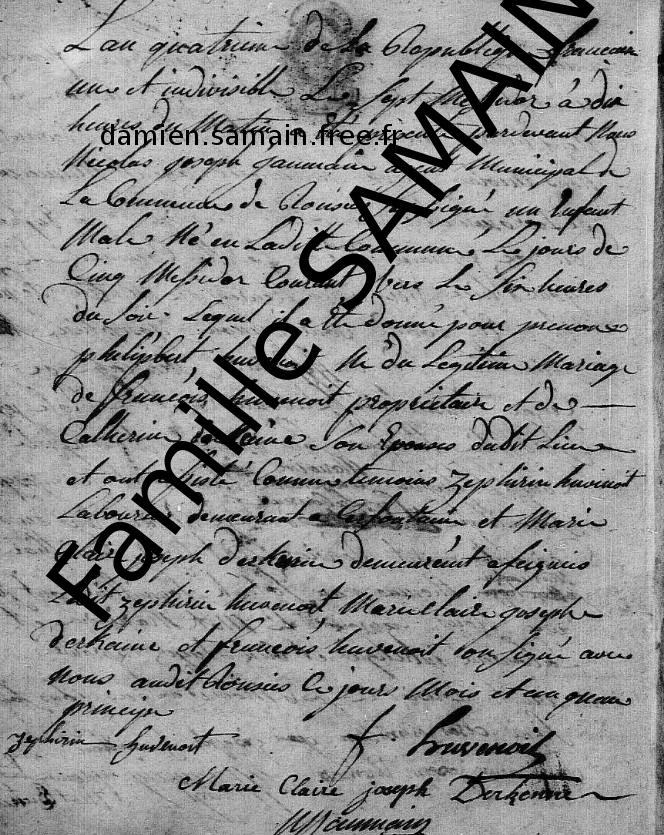 L'an quatrieme de la Republique francaise
une et indivisible Le Sept Messidor à dix
heures du Matin pardevant Nous
Nicolas joseph agent Municipal de
La Commune de Rousies un Enfant
Male Né en Laditte Commune Le jours de
Cinq Messidor Courant vers Le Six heures
du Soir Lequel il a Eté donné pour prenom
philipbert huvenoit Né du Legitime Mariage
de francois huvenoit propriétaire et de
Catherine Son Epouse dudit Lieu
et ont assisté Comme temoins zephirin huvenoit
Laboureur demeurant a Cerfontaine et Marie
Claire joseph derkenne demeurent a feignies
Ledit zephirin huvenoit Marie Claire josephe
derkenne et francois huvenoit ont Signé avec
Nous audit Rousies Le jours Mois et an que
zephirin huvenoit f. huvenoit
Marie Claire joseph Derkenne
Famille SAMAIN
damien.samain.free.fr